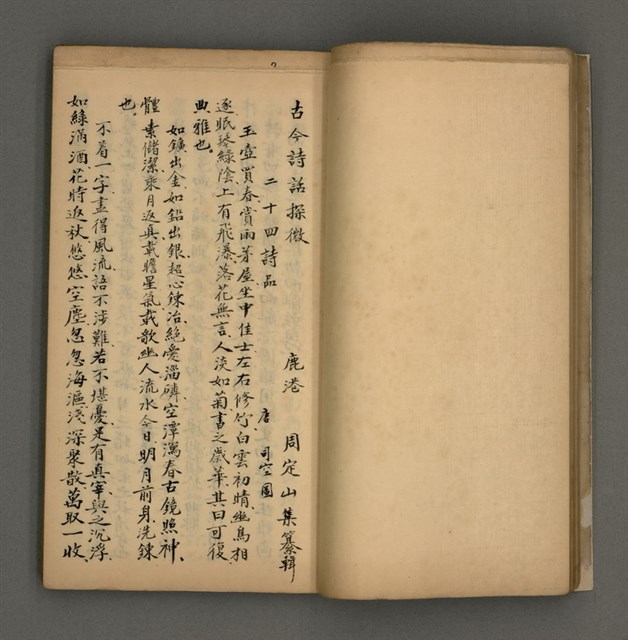 古今詩話探微　鹿港　周定山集纂輯
二十四詩品　唐　司空圖
玉壺買春賞雨茅屋坐中佳士左右修竹白雲初晴幽鳥相
逐眠琴綠陰上有飛瀑落花無言人淡如菊書之歲華其曰可復
典雅也。
如鑛出金如鉛出銀超心鍊冶絕愛淄磷空潭瀉春古鏡照神、
體素儲潔乘月返真載瞻星氣載歌幽人流水今日明月前身洗鍊
也。
不着一字盡得風流語不涉難若不堪憂是有真宰與之沉浮、
如綠滿酒花時返秋悠悠空塵忽忽海漚淺深聚散萬取一收、